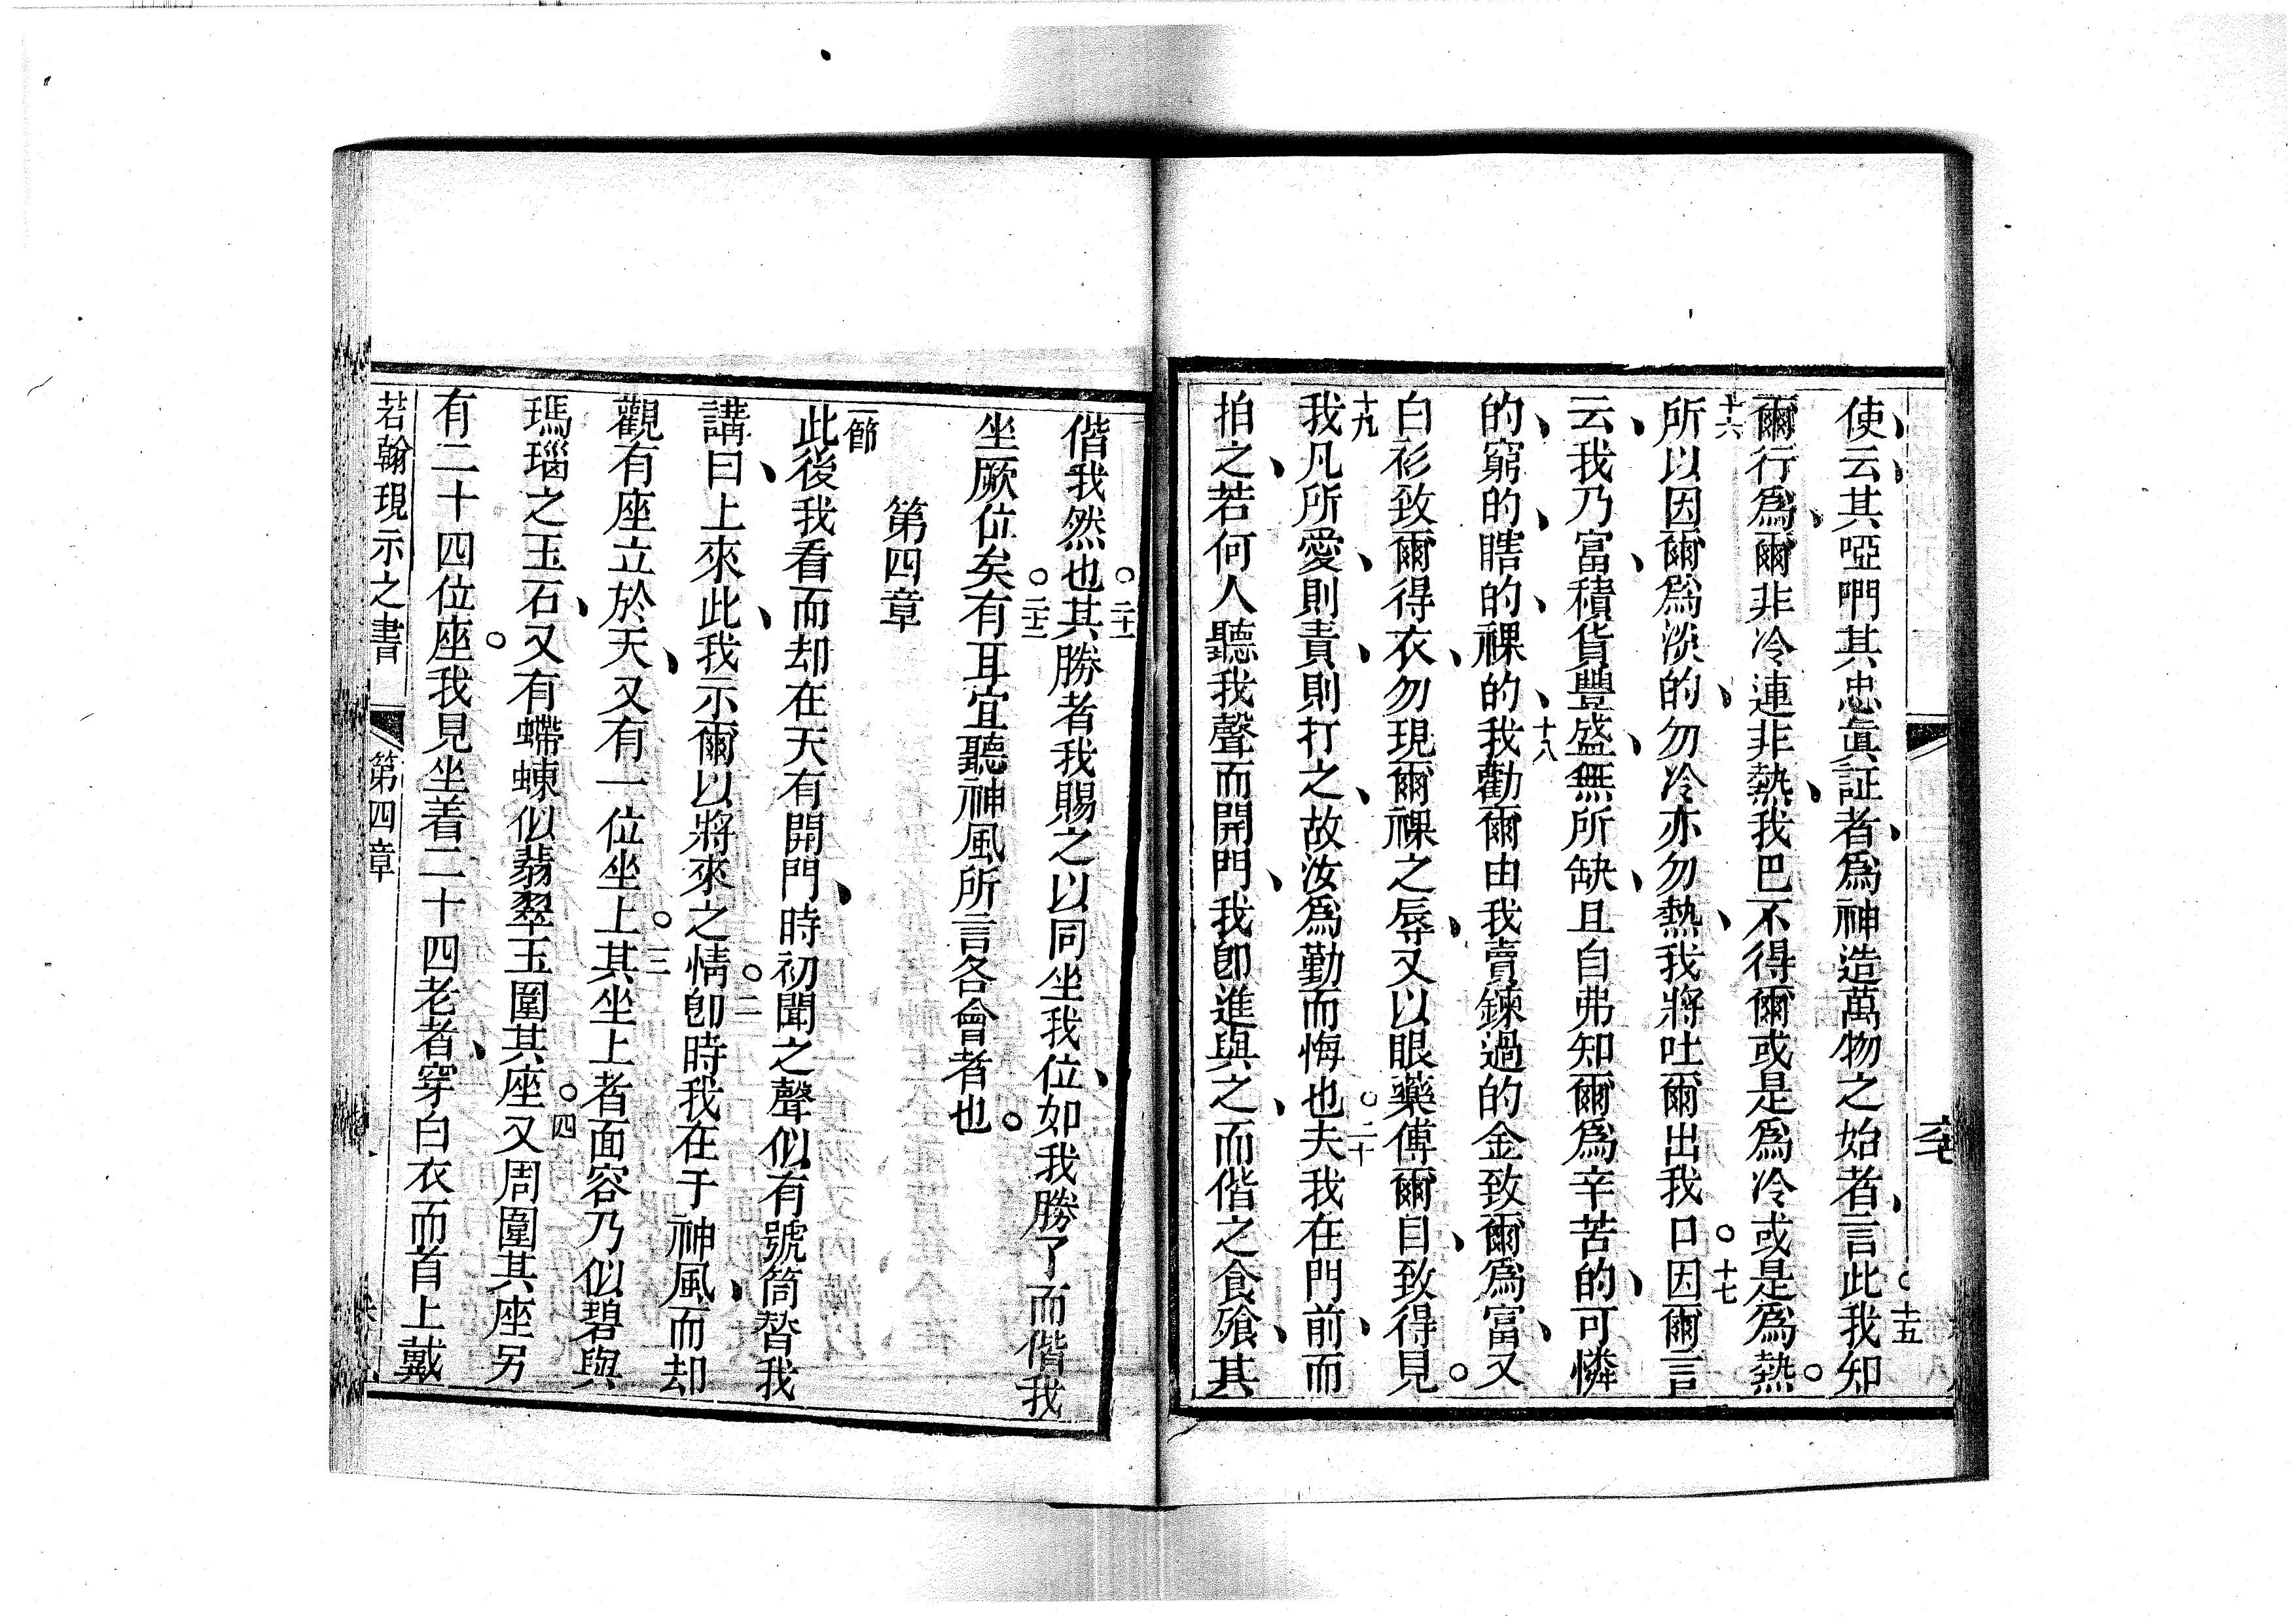 使、云、其啞唧其忠眞証者、爲神造萬物之始者、言此○十五我知
爾行爲、爾非冷連非熱、我巴不得爾或是爲冷或是爲熱。
十六所以因爾爲淡的、勿冷亦勿熱、我將吐爾出我口○十七因爾言
云、我乃富、積貨豐盛、無所缺、且自弗知爾爲辛苦的、可憐
的、窮的、瞎的、祼的、十八我勸爾由我賣鍊過的金致爾爲富、又
白衫致爾得衣、勿現爾祼之辱、又以眼藥傅爾目、致得見。
十九我凡所愛、則責、則打之、故汝爲勤而悔也○二十夫我在門前、而
拍之、若何人聽我聲而開門、我卽進與之、而偕之食飱、其
偕我然也○二十一其勝者我賜之以同坐我位、如我勝了而偕我
坐厥位矣○二十二有耳宜聽神風所言各會者也。
第四章
一節此後我看而却在天有開門、時初聞之聲似有號筒瞽我
講曰、上來此、我示爾以將來之情○二卽時我在于神風、而却
觀有座立於天、又有一位坐上○三其坐上者面容乃似碧與
瑪瑙之玉石、又有蝃蝀似翡翠玉圍其座○四又周圍其座另
有二十四位座。我見坐着二十四老者、穿白衣而首上戴
若翰現示之書　第四章